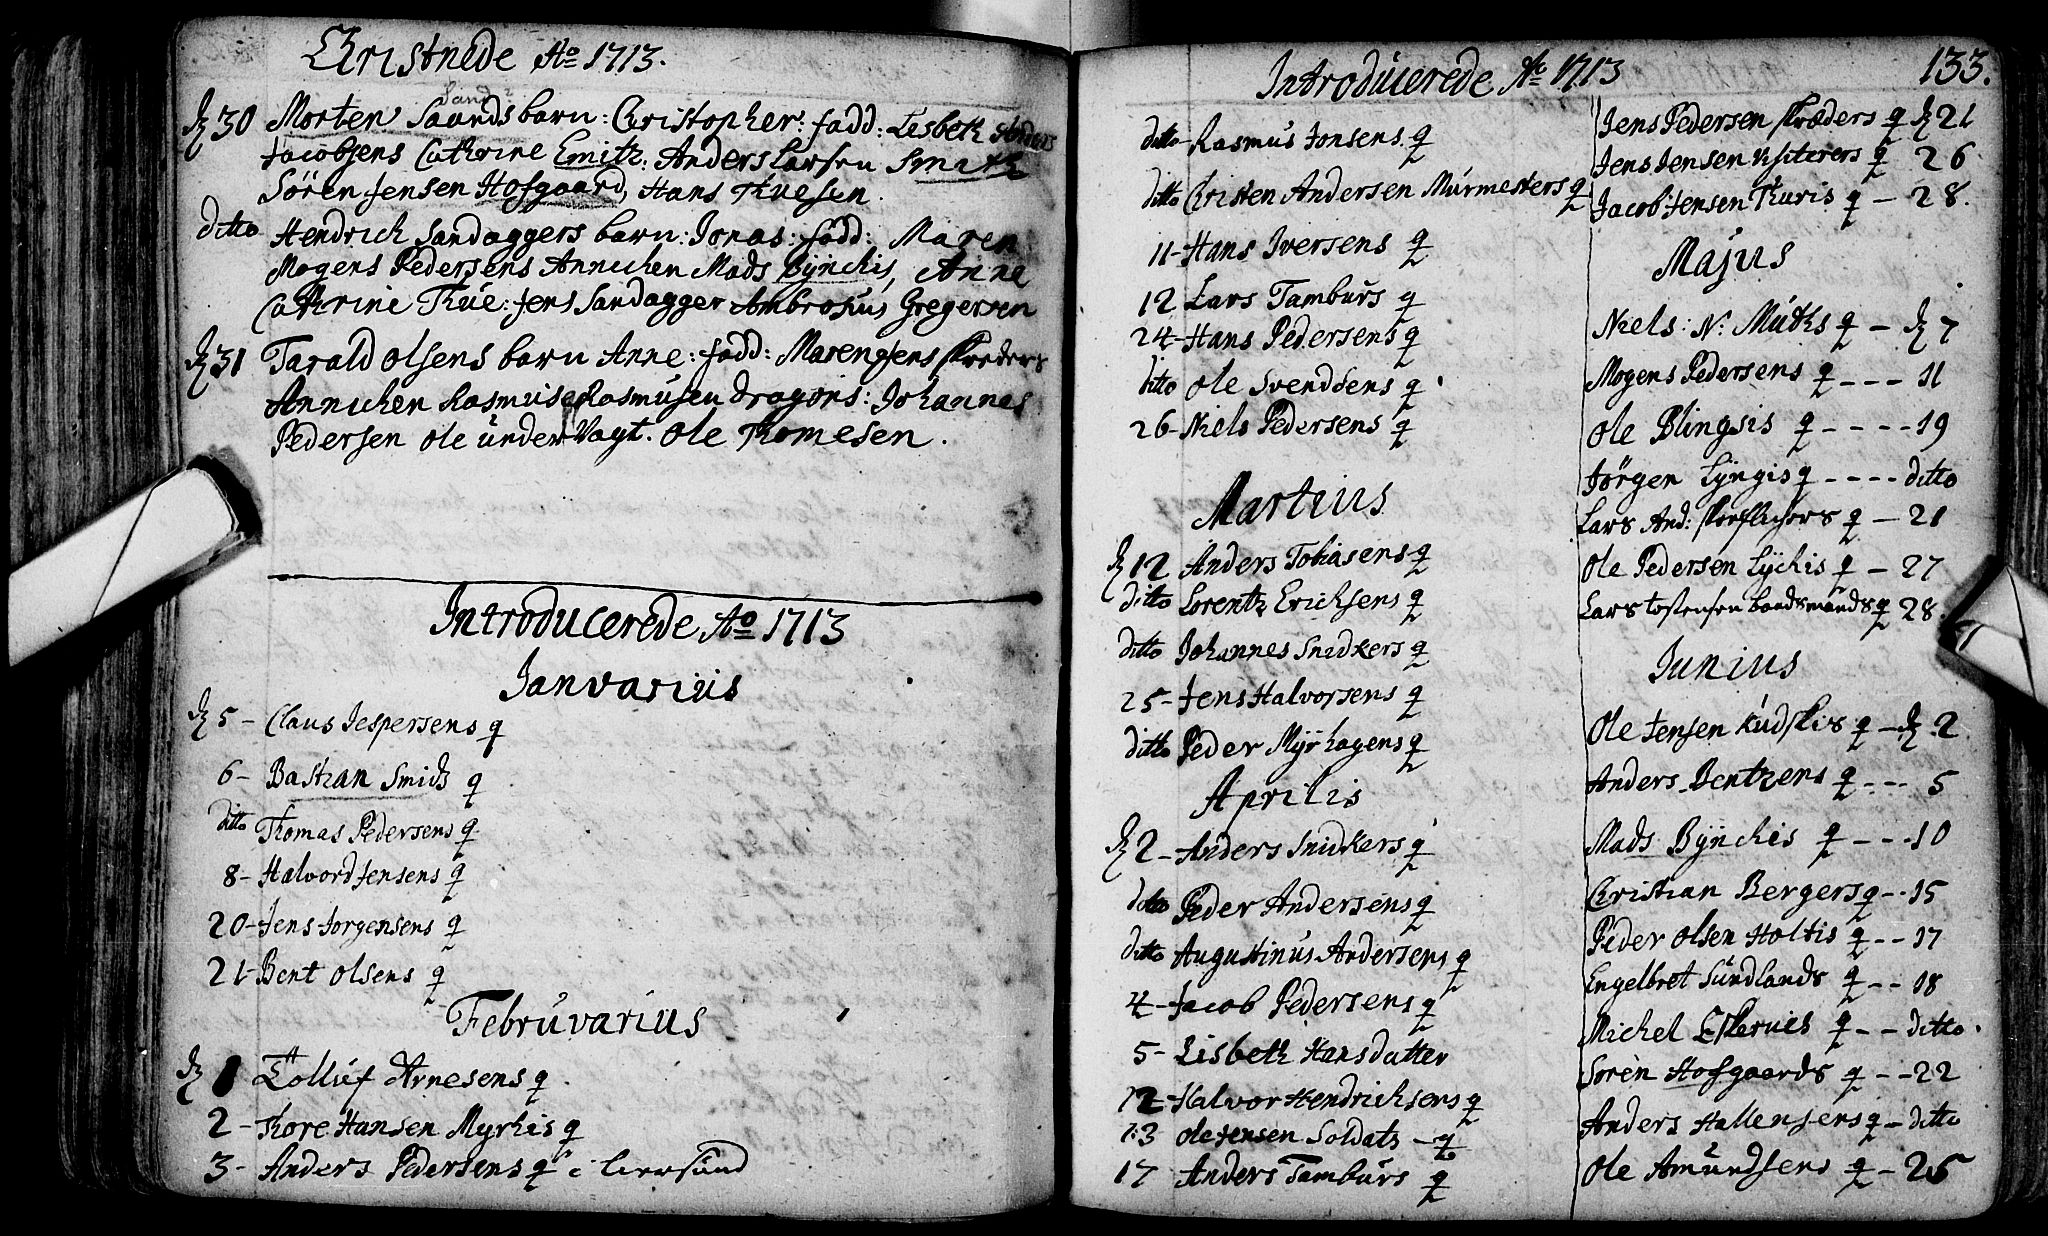 Christnede Ao 1713.
Sand?
d 30 Morten Saands barn: Christopher: fadd: Lisbeth Anders
Jacobsens Cathrine Emitz. Anders Larsen Smith
Søren Jensen Hofgaard, Hans Thuesen.
ditto Hendrich Sandaggers barn: Jonas: fadd: Maren
Mogens Pedersens Annichen Mads Bÿnchis, Anne
Cathrine Thue: Jens Sandagger Ambrosius Gregersen
d 31 Tarald Olsens barn Anne: fadd: Maren Jens Skreders
Annichen Rasmuse Rasmusen dragons: Johannes
Pedersen Ole under Vagt. Ole Thomesen.
Introducerede Ao 1713
Janvarius
d 5 - Claus Jespersens q
6 - Bastian Smids q
ditto Thomas Pedersens q
8 - Halvord Jensens q
20 - Jens Jorgensens q
21 - Bent Olsens q
Februvarius
d 1 Tolluf Arnesens q
2 - Thore Hansen Myrhis q
3 - Anders Pedersens q i
Introducerede Ao 1713
133.
ditto - Rasmus Jonsens q
ditto Christen Andersen Murmesters q
11 - Hans Iversens q
12 Lars Tamburs q
24 - Hans Pedersens q
ditto Ole Svendsens q
26 - Niels Pedersens q
Martius
d 12 Anders Tobiasens q
ditto Lorentz Ericksens q
ditto Johannes Snidkers q
25 - Jens Halvorsens q
ditto Peder Myrhagens q
Aprilis
d 2 - Anders Snidkers q
ditto Peder Andersens q
ditto Augustinus Andersens q
4 - Jacob Pedersens q
5 - Lisbeth Hansdatter
12 - Halvor Hendrichsens q
13 Ole Jensen Soldats - q
17 - Anders Tamburs q
Jens Pedersen Skræders q d 21
Jens Jensen Visiterers q 26
Jacob Jensen Thuris q - 28.
Majus
Niels: N: Muths q - d 7
Mogens Pedersens q - - - 11
Ole Blingsis q - - - - 19
Jörgen Lÿngis q - - - - ditto
Lars And: q - 21
Ole Pedersen Lÿchis q - 27
Lars Tostensen Baadsmands q 28.
Junius
Ole Jensen Kudskis q - d 2
Anders Bentzens q - - - 5
Mads Bÿnchis q - - - 10
Christian Bergers q - - 15
Peder Olsen Holtis q - - 17
Engelbret Sundlands q - - 18
Michel q - - ditto.
Soren Hofgaards q - - 22
Anders Hallensens q - ditto
Ole Amundsens q - 25